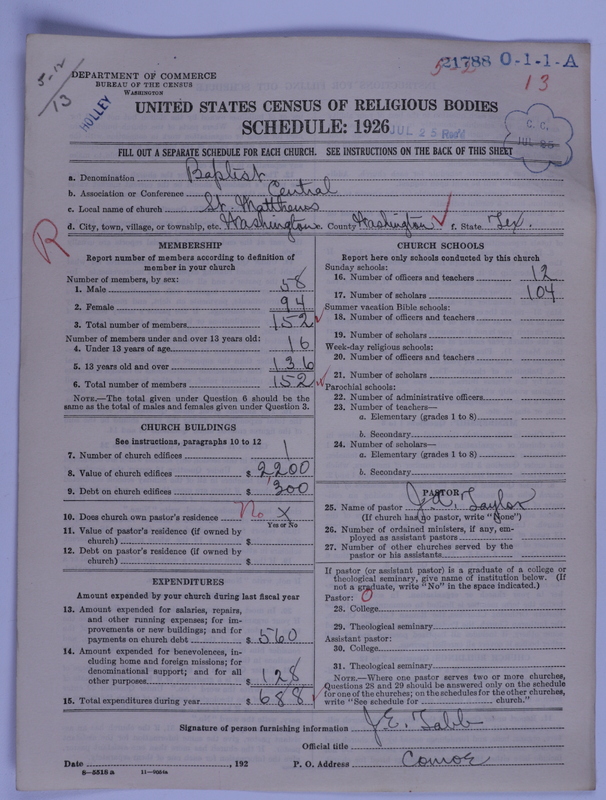 21788 0-1-1-A
5-12
13
5-12
13
HOLLEY
DEPARTMENT OF COMMERCE
BUREAU OF THE CENSUS
WASHINGTON
UNITED STATES CENSUS OF RELIGIOUS BODIES
SCHEDULE: 1926
JUL 25 Rec'd
C. C.
JUL 25
FILL OUT A SEPARATE SCHEDULE FOR EACH CHURCH. SEE INSTRUCTIONS ON THE BACK OF THIS SHEET
a. Denomination Baptist
b. Association or Conference Central
c. Local name of church St. Matthews
d. City, town, village, or township, etc. Washington e. County Washington f. State Tex.
R
MEMBERSHIP
Report number of members according to definition of
member in your church
Number of members, by sex:
1. Male 58
2. Female 94
3. Total number of members 152
Number of members under and over 13 years old:
4. Under 13 years of age 16
5. 13 years old and over 136
6. Total number of members 152
NOTE.—The total given under Question 6 should be the
same as the total of males and females given under Question 3.
CHURCH BUILDINGS
See instructions, paragraphs 10 to 12
7. Number of church edifices 1
8. Value of church edifices $ 2200
9. Debt on church edifices $ 300
10. Does church own pastor's residence No X
Yes or No
11. Value of pastor's residence (if owned by
church) $
12. Debt on pastor's residence (if owned by
church) $
EXPENDITURES
Amount expended by your church during last fiscal year
13. Amount expended for salaries, repairs,
and other running expenses; for im-
provements or new buildings; and for
payments on church debt $ 560
14. Amount expended for benevolences, in-
cluding home and foreign missions; for
denominational support; and for all
other purposes $ 128
15. Total expenditures during year $ 688
CHURCH SCHOOLS
Report here only schools conducted by this church
Sunday schools:
16. Number of officers and teachers 12
17. Number of scholars 104
Summer vacation Bible schools:
18. Number of officers and teachers
19. Number of scholars
Week-day religious schools:
20. Number of officers and teachers
21. Number of scholars
Parochial schools:
22. Number of administrative officers
23. Number of teachers—
a. Elementary (grades 1 to 8)
b. Secondary
24. Number of scholars—
a. Elementary (grades 1 to 8)
b. Secondary
PASTOR
25. Name of pastor J.A. Taylor
(If church has no pastor, write "None")
26. Number of ordained ministers, if any, em-
ployed as assistant pastors
27. Number of other churches served by the
pastor or his assistants
If pastor (or assistant pastor) is a graduate of a college or
theological seminary, give name of institution below. (If
not a graduate, write "No" in the space indicated.)
Pastor: 0
28. College
29. Theological seminary
Assistant pastor:
30. College
31. Theological seminary
NOTE.—Where one pastor serves two or more churches,
Questions 28 and 29 should be answered only on the schedule
for one of the churches; on the schedules for the other churches,
write "See schedule for church."
Signature of person furnishing information J.E. Tabb
Official title
Date , 192 P. O. Address
8—5518a 11—9084a